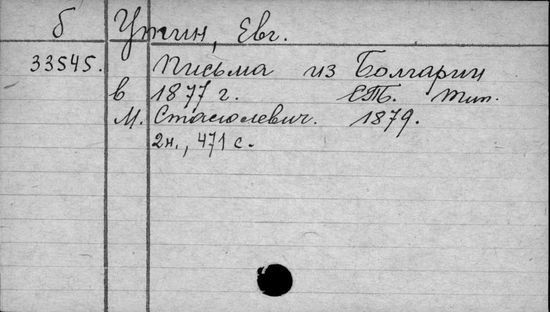 б Утин, Евг.
33545. Письма из Болгарии
в 1877 г. СПб. Тип.
М. Стасюлевич. 1879.
2н., 471 с.